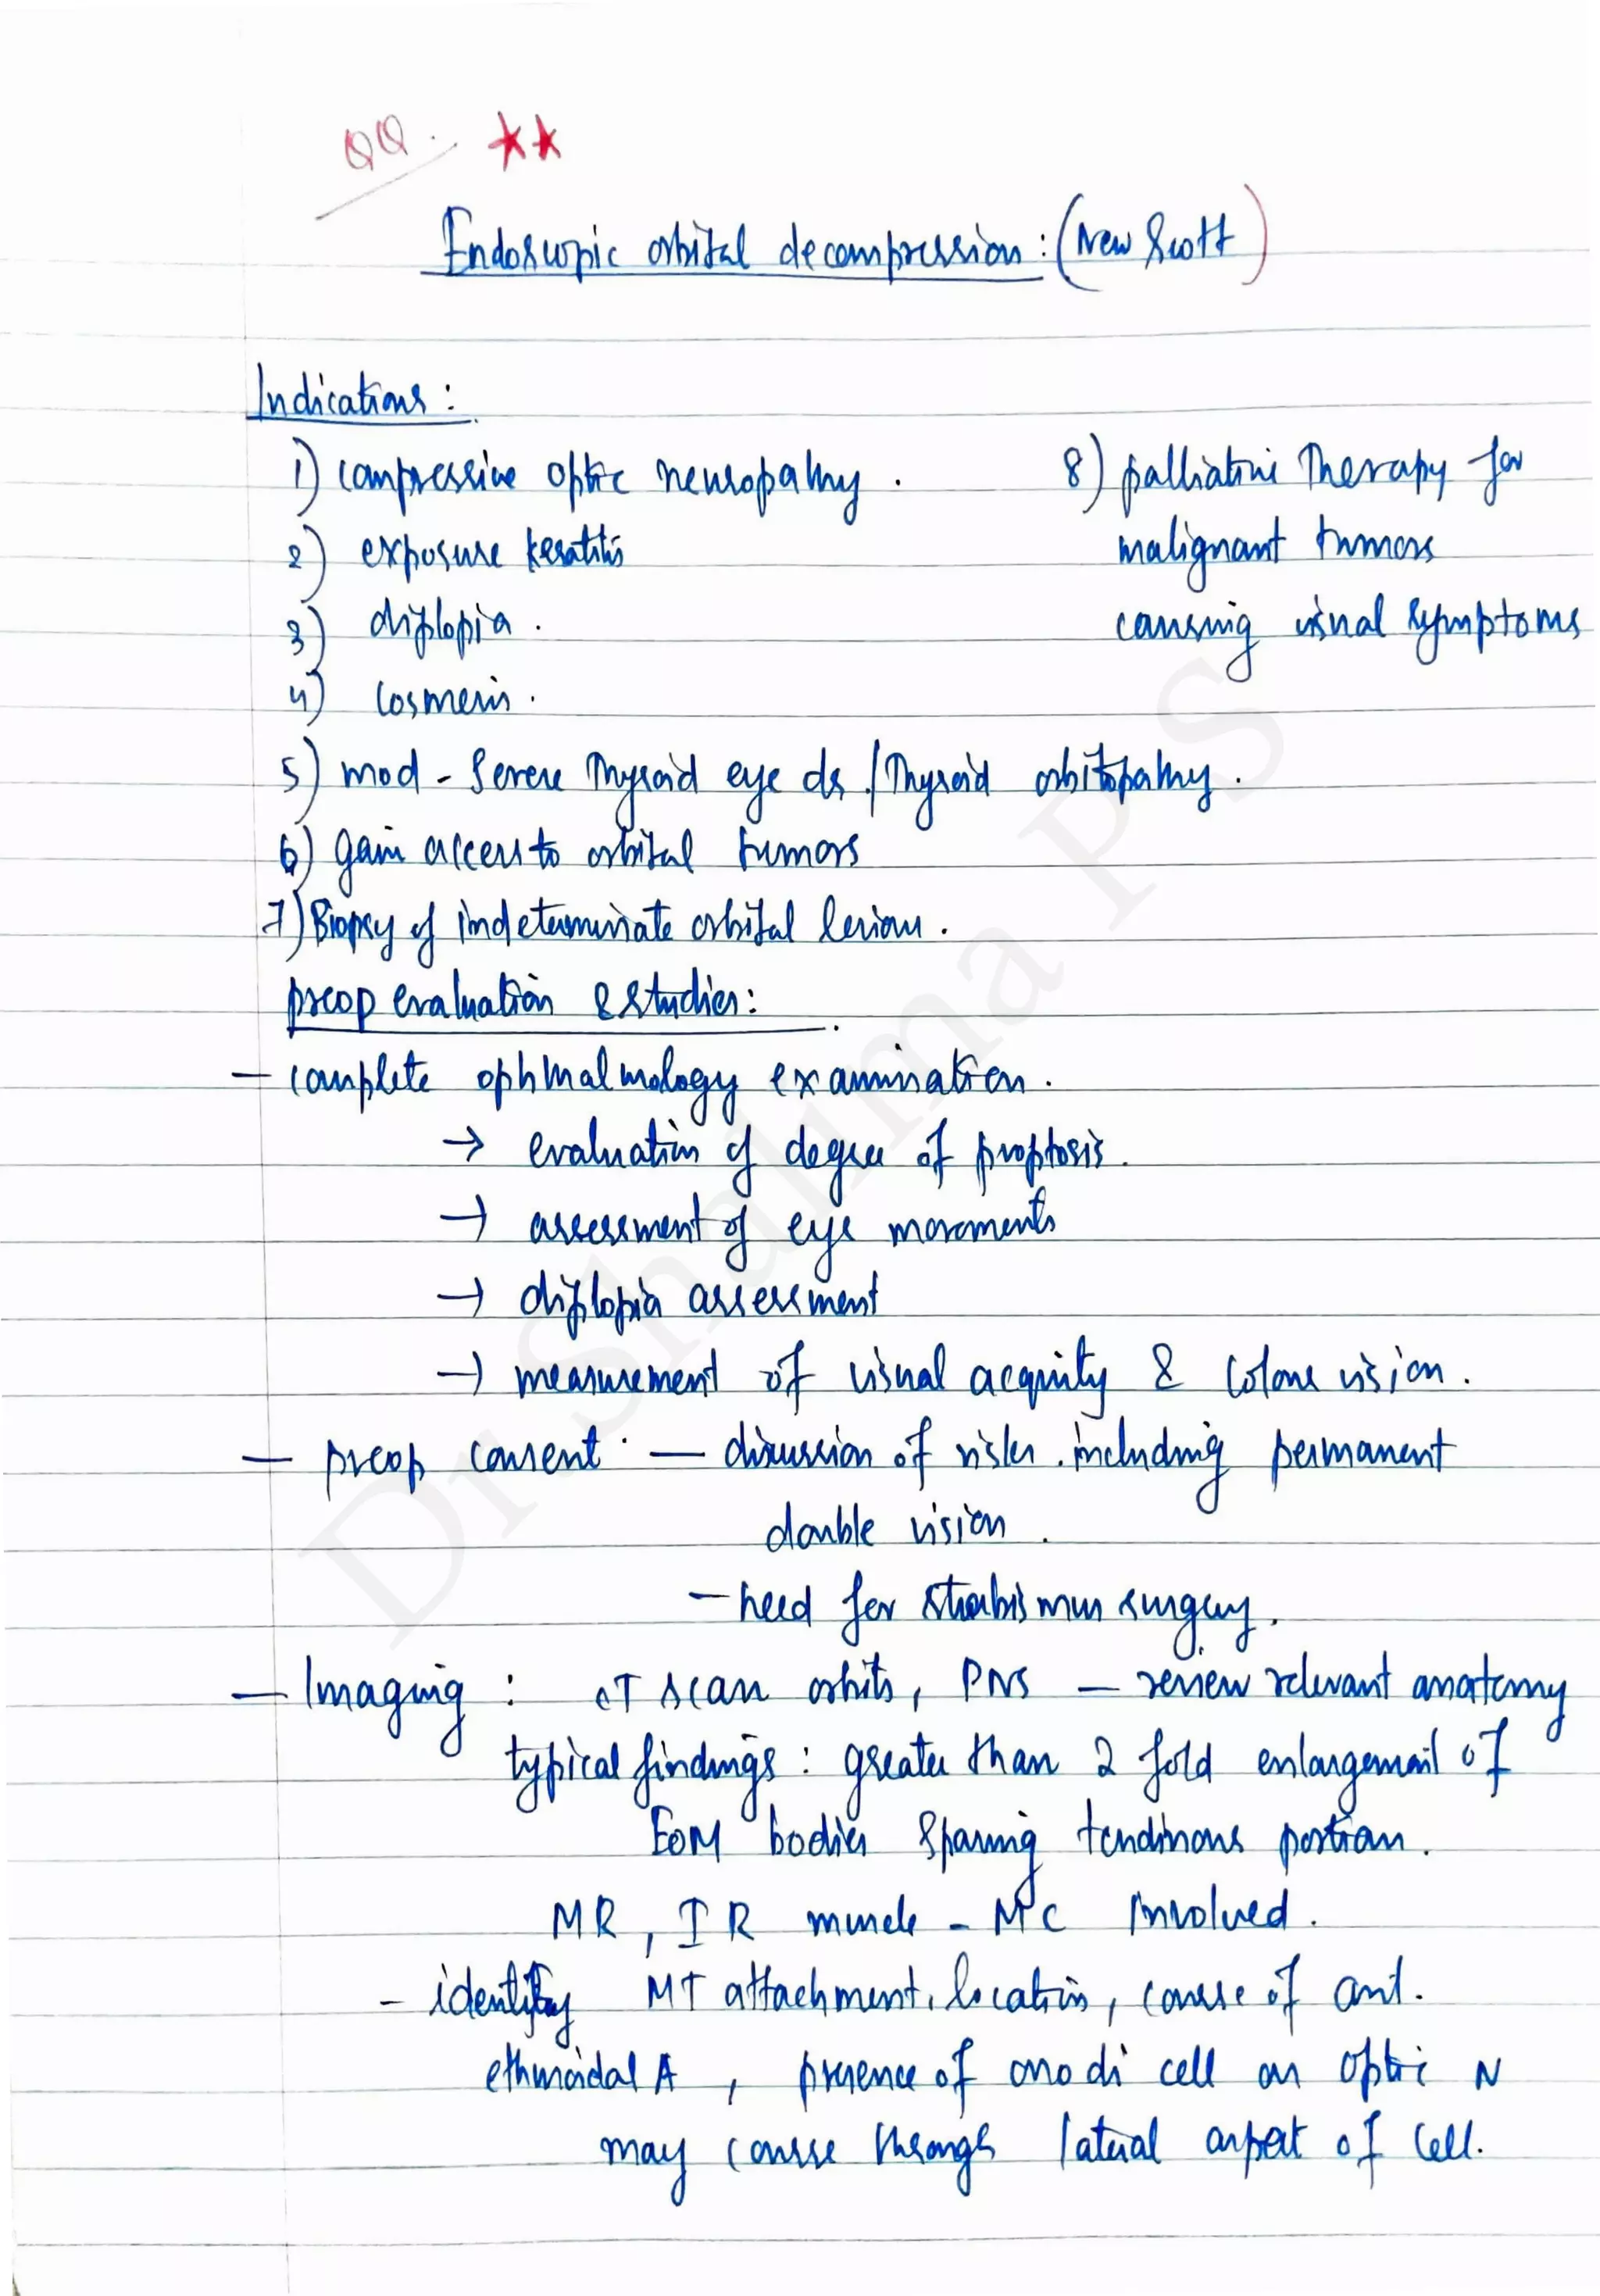 QQ. ★★
Endoscopic orbital decompression: (New Scott)
Indications:
1) compressive optic neuropathy.
2) exposure keratitis
3) diplopia.
4) cosmesis.
5) mod - severe Thyroid eye ds / Thyroid orbitopathy.
6) gain access to orbital tumors
7) Biopsy of indeterminate orbital lesion.
8) palliative Therapy for
malignant tumors
causing visual symptoms
preop evaluation & studies:
- complete ophthalmology examination.
→ evaluation of degree of proptosis.
→ assessment of eye movements
→ diplopia assessment
→ measurement of visual acquity & colour vision.
- preop consent - discussion of risks including permanent
double vision.
- need for strabismus surgery.
- Imaging : CT scan orbits, PNS - review relevant anatomy
typical findings : greater than 2 fold enlargement of
EOM bodies sparing tendinous portion.
MR, IR muscle - MC involved.
- identify MT attachment, location, course of ant.
ethmoidal A, presence of onodi cell as optic N
may course through lateral aspect of cell.
Dr Shalima P S